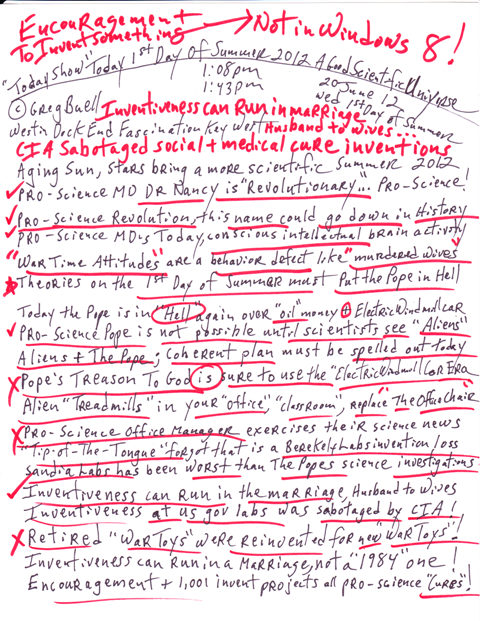 EncouRagement → Not in Windows 8!
To Invent Something
"Today Show" Today 1st Day Of Summer 2012 A Good Scientific Universe
1:08pm
1:43pm
20 June 12
Wed 1st Day of Summer
© Greg Buell Inventiveness can Run in marriage
Westin Dock End Fascination Key West Husband to Wives...
CIA Sabotaged social + medical cure inventions
Aging Sun, stars bring a more scientific Summer 2012
✓ PRO-Science MD DR Nancy is "Revolutionary".. Pro-Science!
✓ PRO-Science Revolution, this name could go down in History
✓ PRO-Science MD's Today, conscious intellectual brain activity
"War Time Attitudes" are a behavior defect like "murdered wives"
Theories on the 1st Day of Summer must Put the Pope in Hell
Today the Pope is in "Hell" again over "oil" money + ElectricWindmillcar
✓ PRO-Science Pope is not possible until scientists see "Aliens"
Aliens + The Pope; coherent plan must be spelled out today
X Pope's Treason To God is sure to use the "ElectricWindmillCar Era
Alien "Treadmills" in your "office", "classroom", replace "The Office Chair"
X PRO-Science Office Manager exercises their science news
"Tip-of-The-Tongue" forgot that is a Berekely Labs invention loss
Sandia Labs has been worst than The Popes science investigations
✓ Inventiveness can run in the marriage, Husband to Wives
Inventiveness at us gov labs was sabotaged by CIA!
X Retired "War Toys" were reinvented for new "War Toys"!
Inventiveness can Run in a Marriage, not a "1984" one!
Encouragement + 1,001 invent projects all pro-science "Cures"!